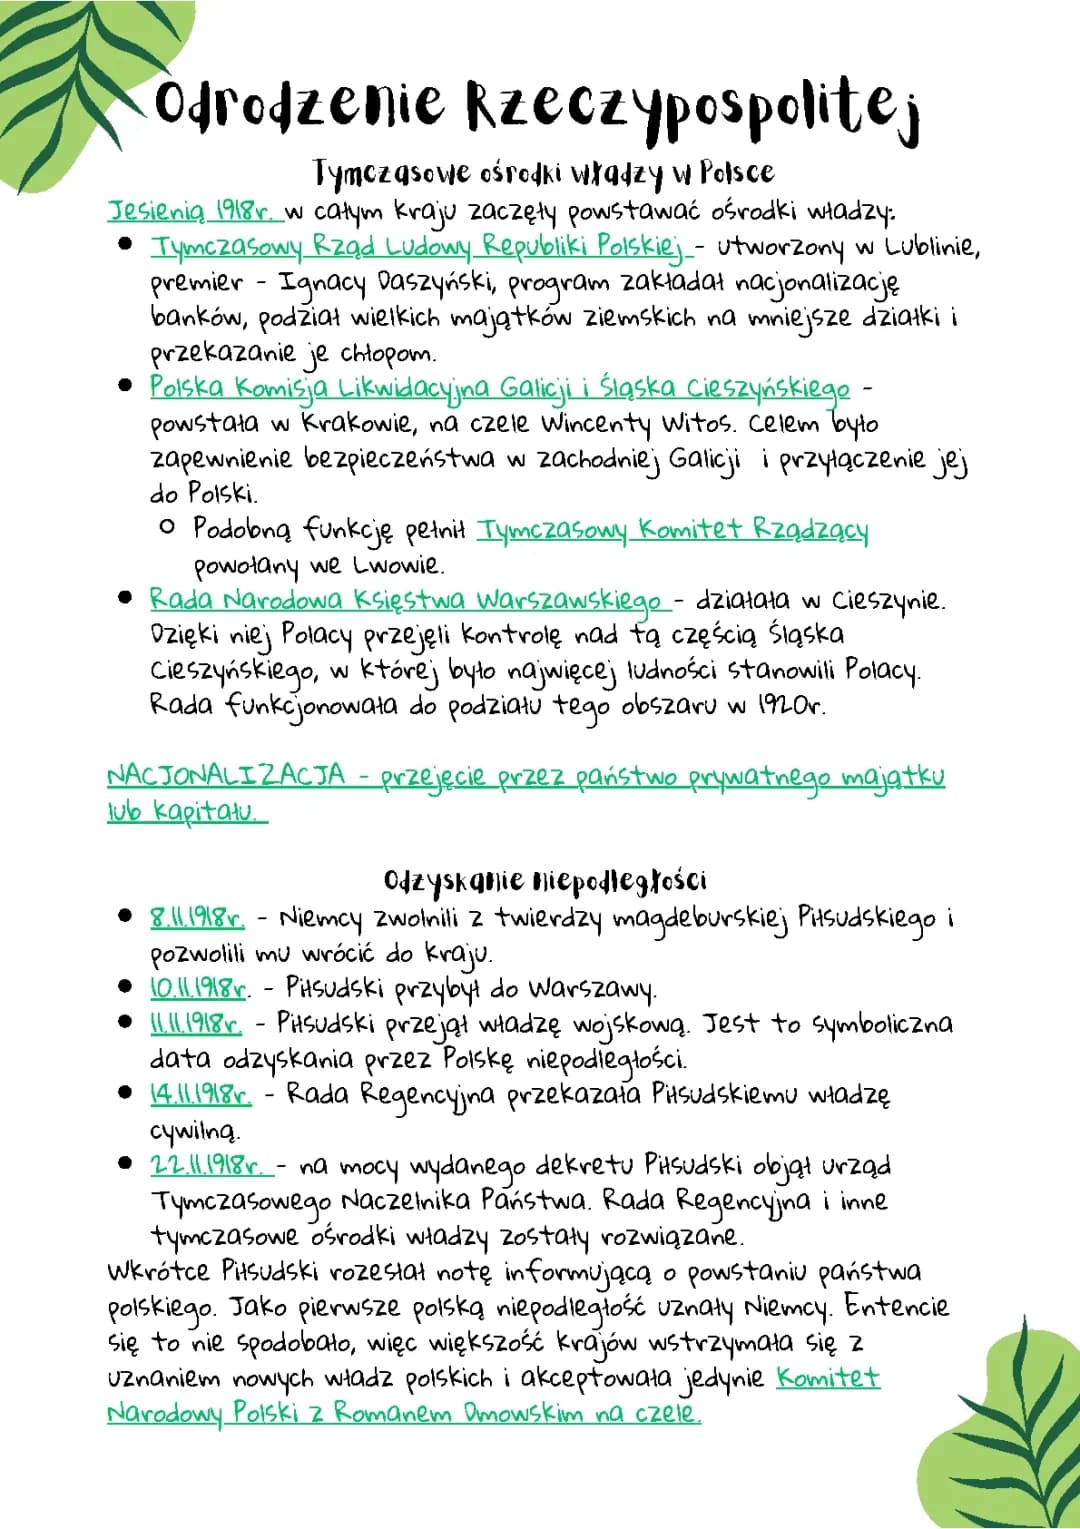 Odrodzenie Rzeczypospolitej
Tymczasowe ośrodki władzy w Polsce
Jesienią 1918r. w całym kraju zaczęły powstawać ośrodki władzy:
• Tymczasowy Rząd Ludowy Republiki Polskiej - utworzony w Lublinie,
premier - Ignacy Daszyński, program zakładał nacjonalizację
banków, podział wielkich majątków ziemskich na mniejsze działki i
przekazanie je chłopom.
• Polska Komisja Likwidacyjna Galicji i Śląska Cieszyńskiego -
powstała w Krakowie, na czele Wincenty Witos. Celem było
zapewnienie bezpieczeństwa w zachodniej Galicji i przyłączenie jej
do Polski.
○ Podobną funkcję pełnił Tymczasowy Komitet Rządzący
powołany we Lwowie.
• Rada Narodowa Księstwa Warszawskiego - działała w Cieszynie.
Dzięki niej Polacy przejęli kontrolę nad tą częścią Śląska
Cieszyńskiego, w której było najwięcej ludności stanowili Polacy.
Rada funkcjonowała do podziału tego obszaru w 1920r.
NACJONALIZACJA - przejęcie przez państwo prywatnego majątku
lub kapitału.
Odzyskanie niepodległości
• 8.11.1918r. - Niemcy zwolnili z twierdzy magdeburskiej Piłsudskiego i
pozwolili mu wrócić do kraju.
• 10.11.1918r. - Piłsudski przybył do Warszawy.
• 11.11.1918r. - Piłsudski przejął władzę wojskową. Jest to symboliczna
data odzyskania przez Polskę niepodległości.
• 14.11.1918r. - Rada Regencyjna przekazała Piłsudskiemu władzę
cywilną.
• 22.11.1918r. - na mocy wydanego dekretu Piłsudski objął urząd
Tymczasowego Naczelnika Państwa. Rada Regencyjna i inne
tymczasowe ośrodki władzy zostały rozwiązane.
Wkrótce Piłsudski rozesłał notę informującą o powstaniu państwa
polskiego. Jako pierwsze polską niepodległość uznały Niemcy. Entencie
się to nie spodobało, więc większość krajów wstrzymała się z
uznaniem nowych władz polskich i akceptowała jedynie Komitet
Narodowy Polski z Romanem Dmowskim na czele.